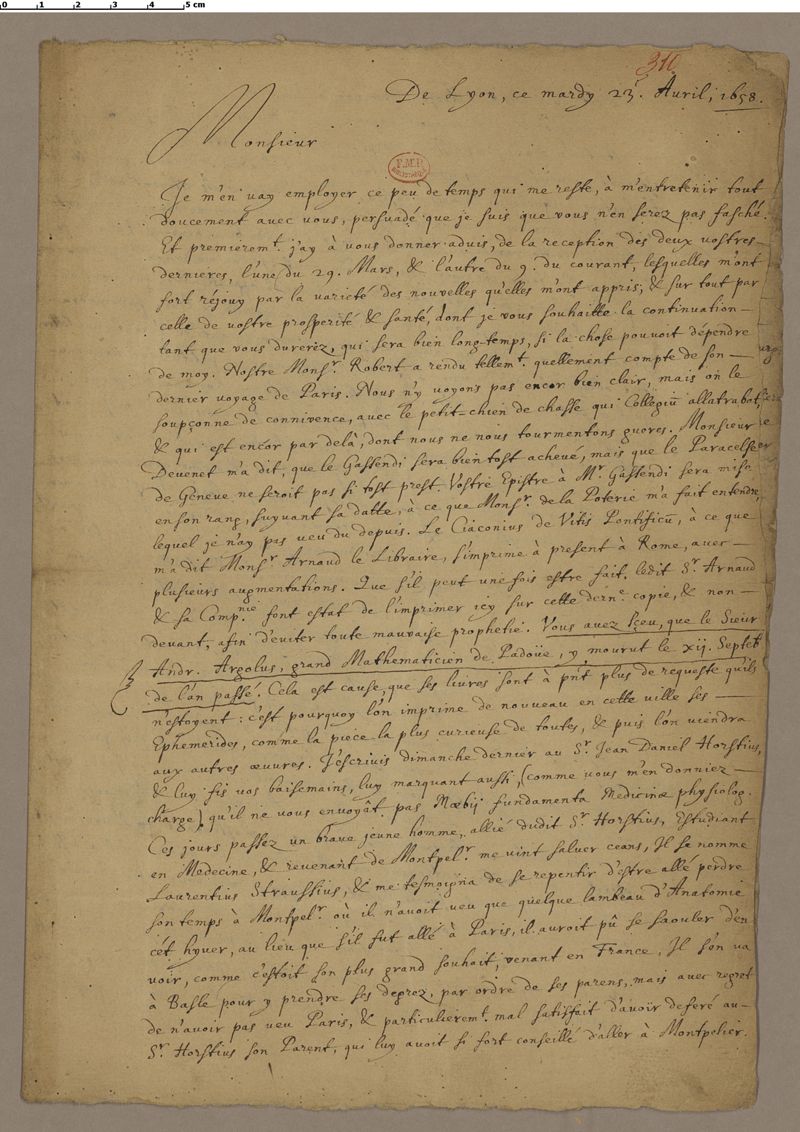 0 1 2 3 4 5 cm
311
De Lyon, ce mardy 23. Avril, 1658.
Monsieur
F.M.P.
BIBLIOTHEQUE
Je m'en vay employer ce peu de temps qui me reste, à m'entretenir tout
doucement avec vous, persuadé que je suis que vous n'en serez pas fasché.
Et premierem.t j'ay à vous donner advis, de la reception des deux vostres
dernieres, l'une du 29. Mars, & l'autre du 9. du courant, lesquelles m'ont
fort réjouy par la varieté des nouvelles qu'elles m'ont appris, & sur tout par
celle de vostre prosperité & santé, dont je vous souhaitte la continuation
tant que vous durerez, qui sera bien long-temps, si la chose pouvoit dépendre
de moy. Nostre Mons.r Robert a rendu tellem.t quellement compte de son
dernier voyage de Paris. Nous n'y voyons pas encor bien clair, mais on le
soupçonne de connivence, avec le petit-chien de chasse qui Collegiū allatrabat,
& qui est encor par delà, dont nous ne nous tourmentons gueres. Monsieur
Devenet m'a dit, que le Gassendi sera bien tost achevé, mais que le Paracelse
de Geneve ne seroit pas si tost prest. Vostre Epistre à M.r Gassendi sera mise
en son rang, suyvant sa datte, à ce que Mons.r de la Poterie m'a fait entendre,
lequel je n'ay pas veu du depuis. Le Ciaconius de Vitis Pontificū, à ce que
m'a dit Mons.r Arnaud le Libraire, s'imprime à present à Rome, avec
plusieurs augmentations. Que s'il peut une fois estre fait, ledit S.r Arnaud
& sa Comp.nie font estat de l'imprimer icy sur cette dern.e copie, & non
devant, afin d'eviter toute mauvaise prophetie. Vous avez sçeu, que le Sieur
Andr. Argolus, grand Mathematicien de Padoüe, y mourut le xij. Septeb.
de l'an passé. Cela est cause, que ses livres sont à pn̄t plus de requeste qu'ils
n'estoyent: c'est pourquoy l'on imprime de nouveau en cette ville ses
Ephemerides, comme la piece la plus curieuse de toutes, & puis l'on viendra
aux autres œuvres. J'escrivis dimanche dernier au S.r Jean Daniel Horstius,
& luy fis vos baisemains, luy marquant aussi, (comme vous m'en donniez
charge) qu'il ne vous envoyât pas Mœbij fundamenta Medicinæ physiolog.
Ces jours passez un brave jeune homme, allié dudit S.r Horstius, Estudiant
en Medecine, & revenant de Montpel.r me vint saluer ceans, Il se nomme
Laurentius Straussius, & me tesmoigna de se repentir d'estre allé perdre
son temps à Montpel.r où il n'avoit veu que quelque lambeau d'Anatomie
cét hyver, au lieu que s'il fut allé à Paris, il auroit pû se saouler d'en
voir, comme c'estoit son plus grand souhait, venant en France. Il s'en va
à Basle pour y prendre ses degrez, par ordre de ses parens, mais avec regret
de n'avoir pas veu Paris, & particulierem.t mal satisfait d'avoir deferé au
S.r Horstius son Parent, qui luy avoit si fort conseillé d'aller à Montpelier.